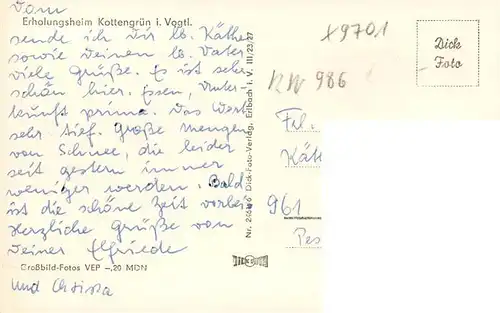 Vom
Erholungsheim Kottengrün i. Vogtl.
sende ich Dir lb. Käthe
sowie Deinen lb. Vater
viele Grüße. Es ist sehr
schön hier. Essen, Unter-
kunft prima. Das
sehr tief. Große Mengen
von Schnee, die leider
seit gestern immer
weniger werden. Bald
ist die schöne Zeit vorbei
Herzliche Grüße von
Deiner Elfriede
Großbild-Fotos VEP –,20 MDN
und
Dick-Foto-Verlag, Erlbach i. V. III/23/27
x9701
KW 986
Dick
Foto
Frl.
Kät
961